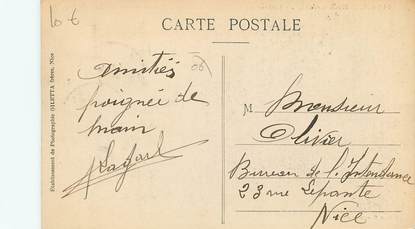 10 €
CARTE POSTALE
06
Amitiés
poignée de
main
M Monsieur
Olivier
Bureau de l'Intendance
23 rue Lepante
Nice
Etablissement de Photographie GILETTA frères, Nice